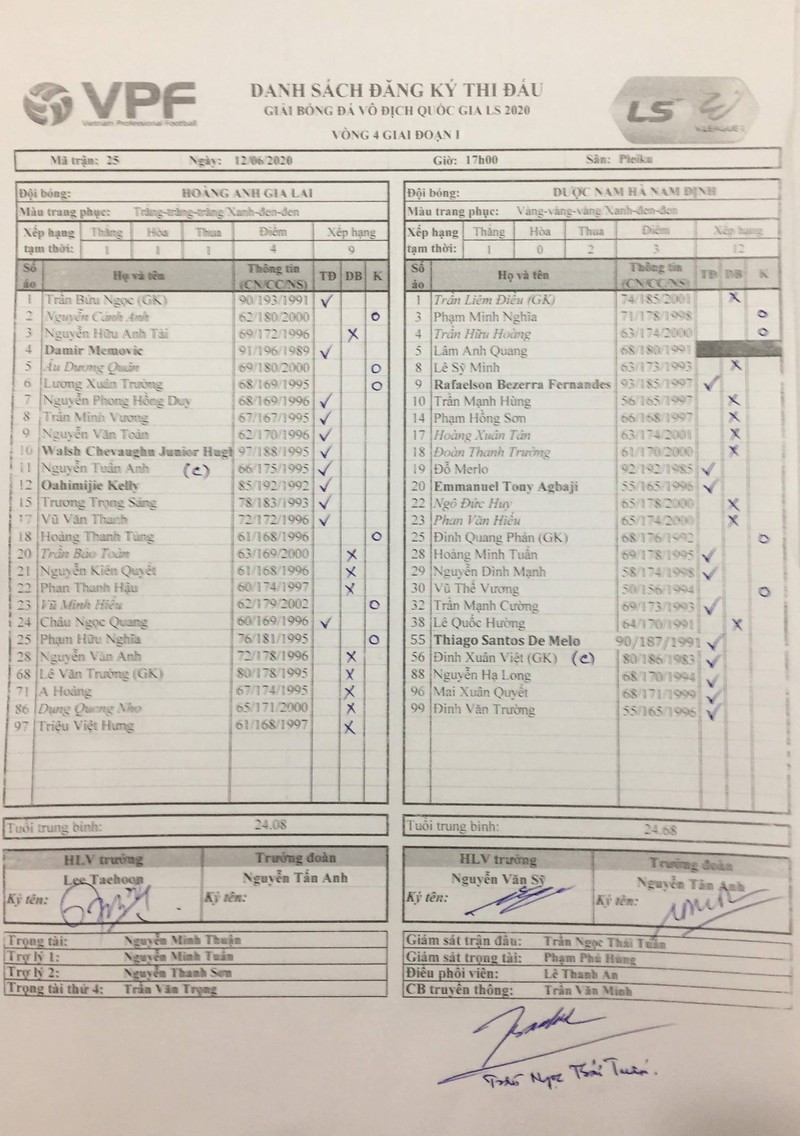 VPF
Vietnam Professional Football
DANH SÁCH ĐĂNG KÝ THI ĐẤU
GIẢI BÓNG ĐÁ VÔ ĐỊCH QUỐC GIA LS 2020
VÒNG 4 GIAI ĐOẠN I
LS V.LEAGUE 1
Mã trận: 25 Ngày: 12/06/2020 Giờ: 17h00 Sân: Pleiku
Đội bóng: HOÀNG ANH GIA LAI
Màu trang phục: Trắng-trắng-trắng/Xanh-đen-đen
Xếp hạng tạm thời: Thắng Hòa Thua Điểm Xếp hạng
1 1 1 4 9
Số áo Họ và tên Thông tin (CN/CC/NS) TĐ DB K
1 Trần Bửu Ngọc (GK) 90/193/1991 ✓
2 Nguyễn Cảnh Anh 62/180/2000 O
3 Nguyễn Hữu Anh Tài 69/172/1996 X
4 Damir Memovic 91/196/1989 ✓
5 Âu Dương Quân 69/180/2000 O
6 Lương Xuân Trường 68/169/1995 O
7 Nguyễn Phong Hồng Duy 68/169/1996 ✓
8 Trần Minh Vương 67/167/1995 ✓
9 Nguyễn Văn Toàn 62/170/1996 ✓
10 Walsh Chevaughn Junior Hugh 97/188/1995 ✓
11 Nguyễn Tuấn Anh (c) 66/175/1995 ✓
12 Oahimijie Kelly 85/192/1992 ✓
15 Trương Trọng Sáng 78/183/1993 ✓
17 Vũ Văn Thanh 72/172/1996 ✓
18 Hoàng Thanh Tùng 61/168/1996 O
20 Trần Bảo Toàn 63/169/2000 X
21 Nguyễn Kiên Quyết 61/168/1996 X
22 Phan Thanh Hậu 60/174/1997 X
23 Vũ Minh Hiếu 62/179/2002 O
24 Châu Ngọc Quang 60/169/1996 ✓
25 Phạm Hữu Nghĩa 76/181/1995 O
28 Nguyễn Văn Anh 72/178/1996 X
68 Lê Văn Trường (GK) 80/178/1995 X
71 A Hoàng 67/174/1995 X
86 Dụng Quang Nho 65/171/2000 X
97 Triệu Việt Hưng 61/168/1997 X
Tuổi trung bình: 24.08
HLV trưởng Trưởng đoàn
Lee Taehoon Nguyễn Tấn Anh
Ký tên: Ký tên:
Trọng tài: Nguyễn Minh Thuận
Trợ lý 1: Nguyễn Minh Tuấn
Trợ lý 2: Nguyễn Thanh Sơn
Trọng tài thứ 4: Trần Văn Trọng
Đội bóng: DƯỢC NAM HÀ NAM ĐỊNH
Màu trang phục: Vàng-vàng-vàng/Xanh-đen-đen
Xếp hạng tạm thời: Thắng Hòa Thua Điểm Xếp hạng
1 0 2 3 12
Số áo Họ và tên Thông tin (CN/CC/NS) TĐ DB K
1 Trần Liêm Điều (GK) 74/185/2001 X
3 Phạm Minh Nghĩa 71/178/1998 O
4 Trần Hữu Hoàng 63/174/2000 O
5 Lâm Anh Quang 68/180/1991
8 Lê Sỹ Minh 63/173/1993 X
9 Rafaelson Bezerra Fernandes 93/185/1997 ✓
10 Trần Mạnh Hùng 56/165/1997 X
14 Phạm Hồng Sơn 66/168/1997 X
17 Hoàng Xuân Tân 63/174/2001 X
18 Đoàn Thanh Trường 61/170/2000 X
19 Đỗ Merlo 92/192/1985 ✓
20 Emmanuel Tony Agbaji 55/165/1996 ✓
22 Ngô Đức Huy 65/178/2000 X
23 Phan Văn Hiếu 65/174/2000 X
25 Đinh Quang Phán (GK) 68/176/1992 O
28 Hoàng Minh Tuấn 69/178/1995 ✓
29 Nguyễn Đình Mạnh 58/174/1998 ✓
30 Vũ Thế Vương 50/156/1994 O
32 Trần Mạnh Cường 69/173/1993 ✓
38 Lê Quốc Hường 64/170/1991 X
55 Thiago Santos De Melo 90/187/1991 ✓
56 Đinh Xuân Việt (GK) (c) 80/186/1983 ✓
88 Nguyễn Hạ Long 68/170/1994 ✓
96 Mai Xuân Quyết 68/171/1999 ✓
99 Đinh Văn Trường 55/165/1996 ✓
Tuổi trung bình: 24.68
HLV trưởng Trưởng đoàn
Nguyễn Văn Sỹ Nguyễn Tấn Anh
Ký tên: Ký tên:
Giám sát trận đấu: Trần Ngọc Thái Tuấn
Giám sát trọng tài: Phạm Phú Hùng
Điều phối viên: Lê Thanh An
CB truyền thông: Trần Văn Minh
Trần Ngọc Thái Tuấn.